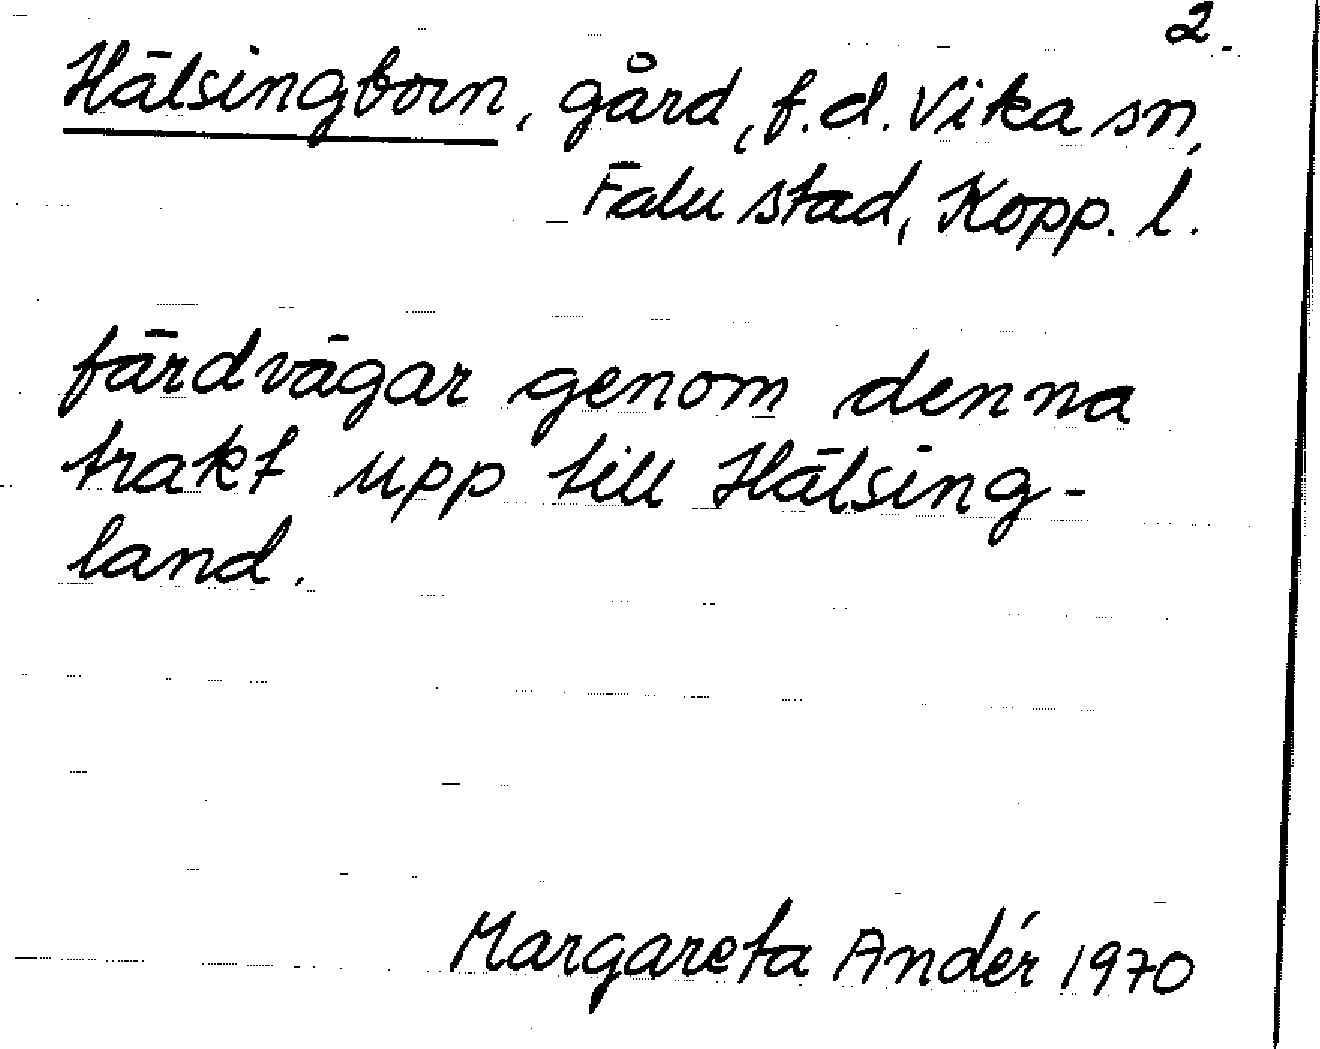 2.
Hälsingborn, gård, f.d. Vika sn,
Falu stad, Kopp. l.
färdvägar genom denna
trakt upp till Hälsing-
land.
Margareta Andér 1970